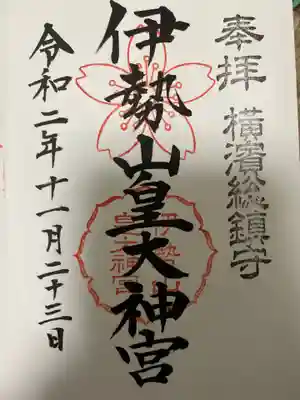 奉拝 横濱総鎮守
伊勢山皇大神宮
令和二年十一月二十三日
伊勢山
皇大神宮